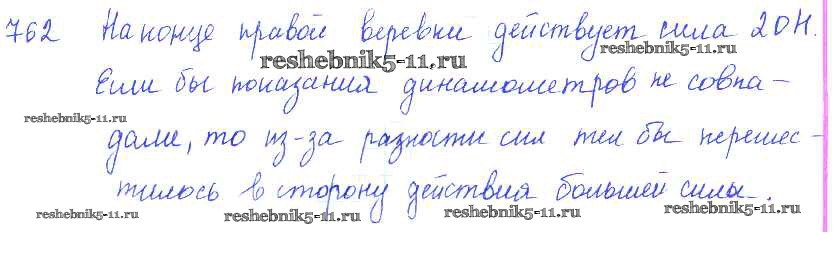 762 На конце правой веревки действует сила 20Н.
reshebnik5-11.ru reshebnik5-11.ru
Если бы показания динамометров не совпа-
reshebnik5-11.ru
дали, то из-за разности сил тел бы перемес-
тилось в сторону действия большей силы.
reshebnik5-11.ru reshebnik5-11.ru reshebnik5-11.ru reshebnik5-11.ru